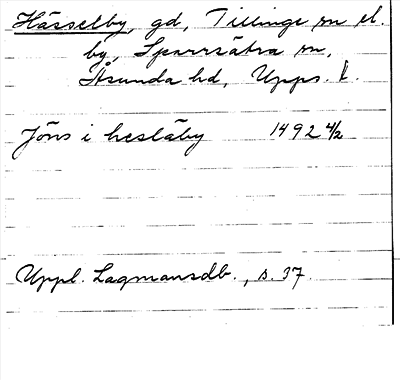 Hässelby, gd, Tillinge sn el.
by, Sparrsätra sn,
Åsunda hd, Upps. l.
Jöns i hesläby 1492 4/2
Uppl. Lagmansdb., s. 37.